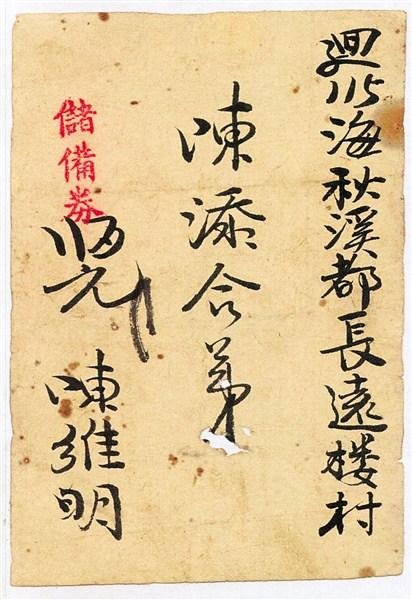 迴115海秋溪都長遠楼村
陳添合弟
儲備券
元
陳維明